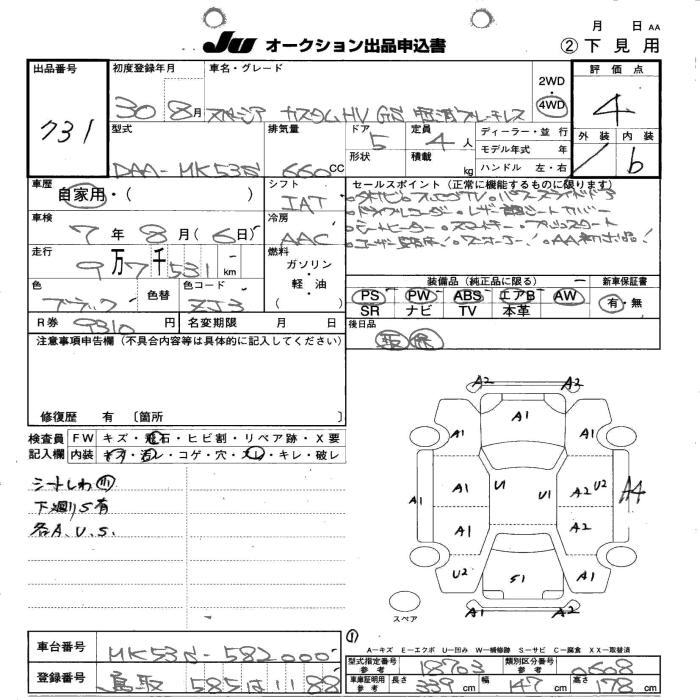 月 日 AA
JU オークション出品申込書 ②下見用
出品番号 初度登録年月 車名・グレード 2WD 4WD 評価点
731 30 8月 スペーシア カスタムHV GS 4
型式 排気量 ドア 5 定員 4人 ディーラー・並行 外装 内装
形状 積載 kg モデル年式 年
DAA-MK53S 660 CC ハンドル 左・右 b
車歴 シフト セールスポイント(正常に機能するものに限ります)
自家用・( ) IAT
ドライブレコーダー・レザー調シートカバー
車検 冷房
7年8月(6日) AAC シートヒーター・スマートキー・プッシュスタート
走行 燃料
9万7千531 km ガソリン・軽・油 ( )
装備品(純正品に限る) 新車保証書
色 色替 色コード PS PW ABS エアB AW 有・無
ブラック ZJ3 SR ナビ TV 本革
R券 9310円 名変期限 月 日 後日品
注意事項申告欄(不具合内容等は具体的に記入してください) 取 保
修復歴 有 〔箇所 〕
検査員記入欄 FW キズ・飛石・ヒビ割・リペア跡・X要
内装 キズ・汚レ・コゲ・穴・スレ・キレ・破レ
シートしわ 小
下廻りS有
各A.U.S.
A2 A2
A1
A1 A1
A1 A1 U1 U1 A2 U2 A4
A1 A2
U2 S1 A1
A1 A2
スペア
①
A-キズ E-エクボ U-凹み W-補修跡 S-サビ C-腐食 XX-取替済
車台番号 MK53S-582000
型式指定番号 参考 18703 類別区分番号 参考 0608
登録番号 鳥取 585 は 1188
車庫証明用 参考 長さ 339 cm 幅 147 cm 高さ 178 cm